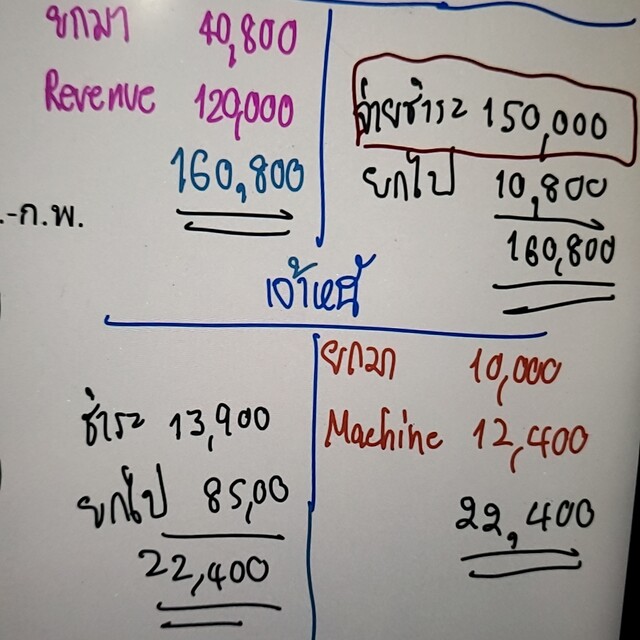 ยกมา 40,800
Revenue 120,000
160,800
จ่ายชำระ 150,000
ยกไป 10,800
160,800
.-ก.พ.
เจ้าหนี้
ชำระ 13,900
ยกไป 85,00
22,400
ยกมา 10,000
Machine 12,400
22,400